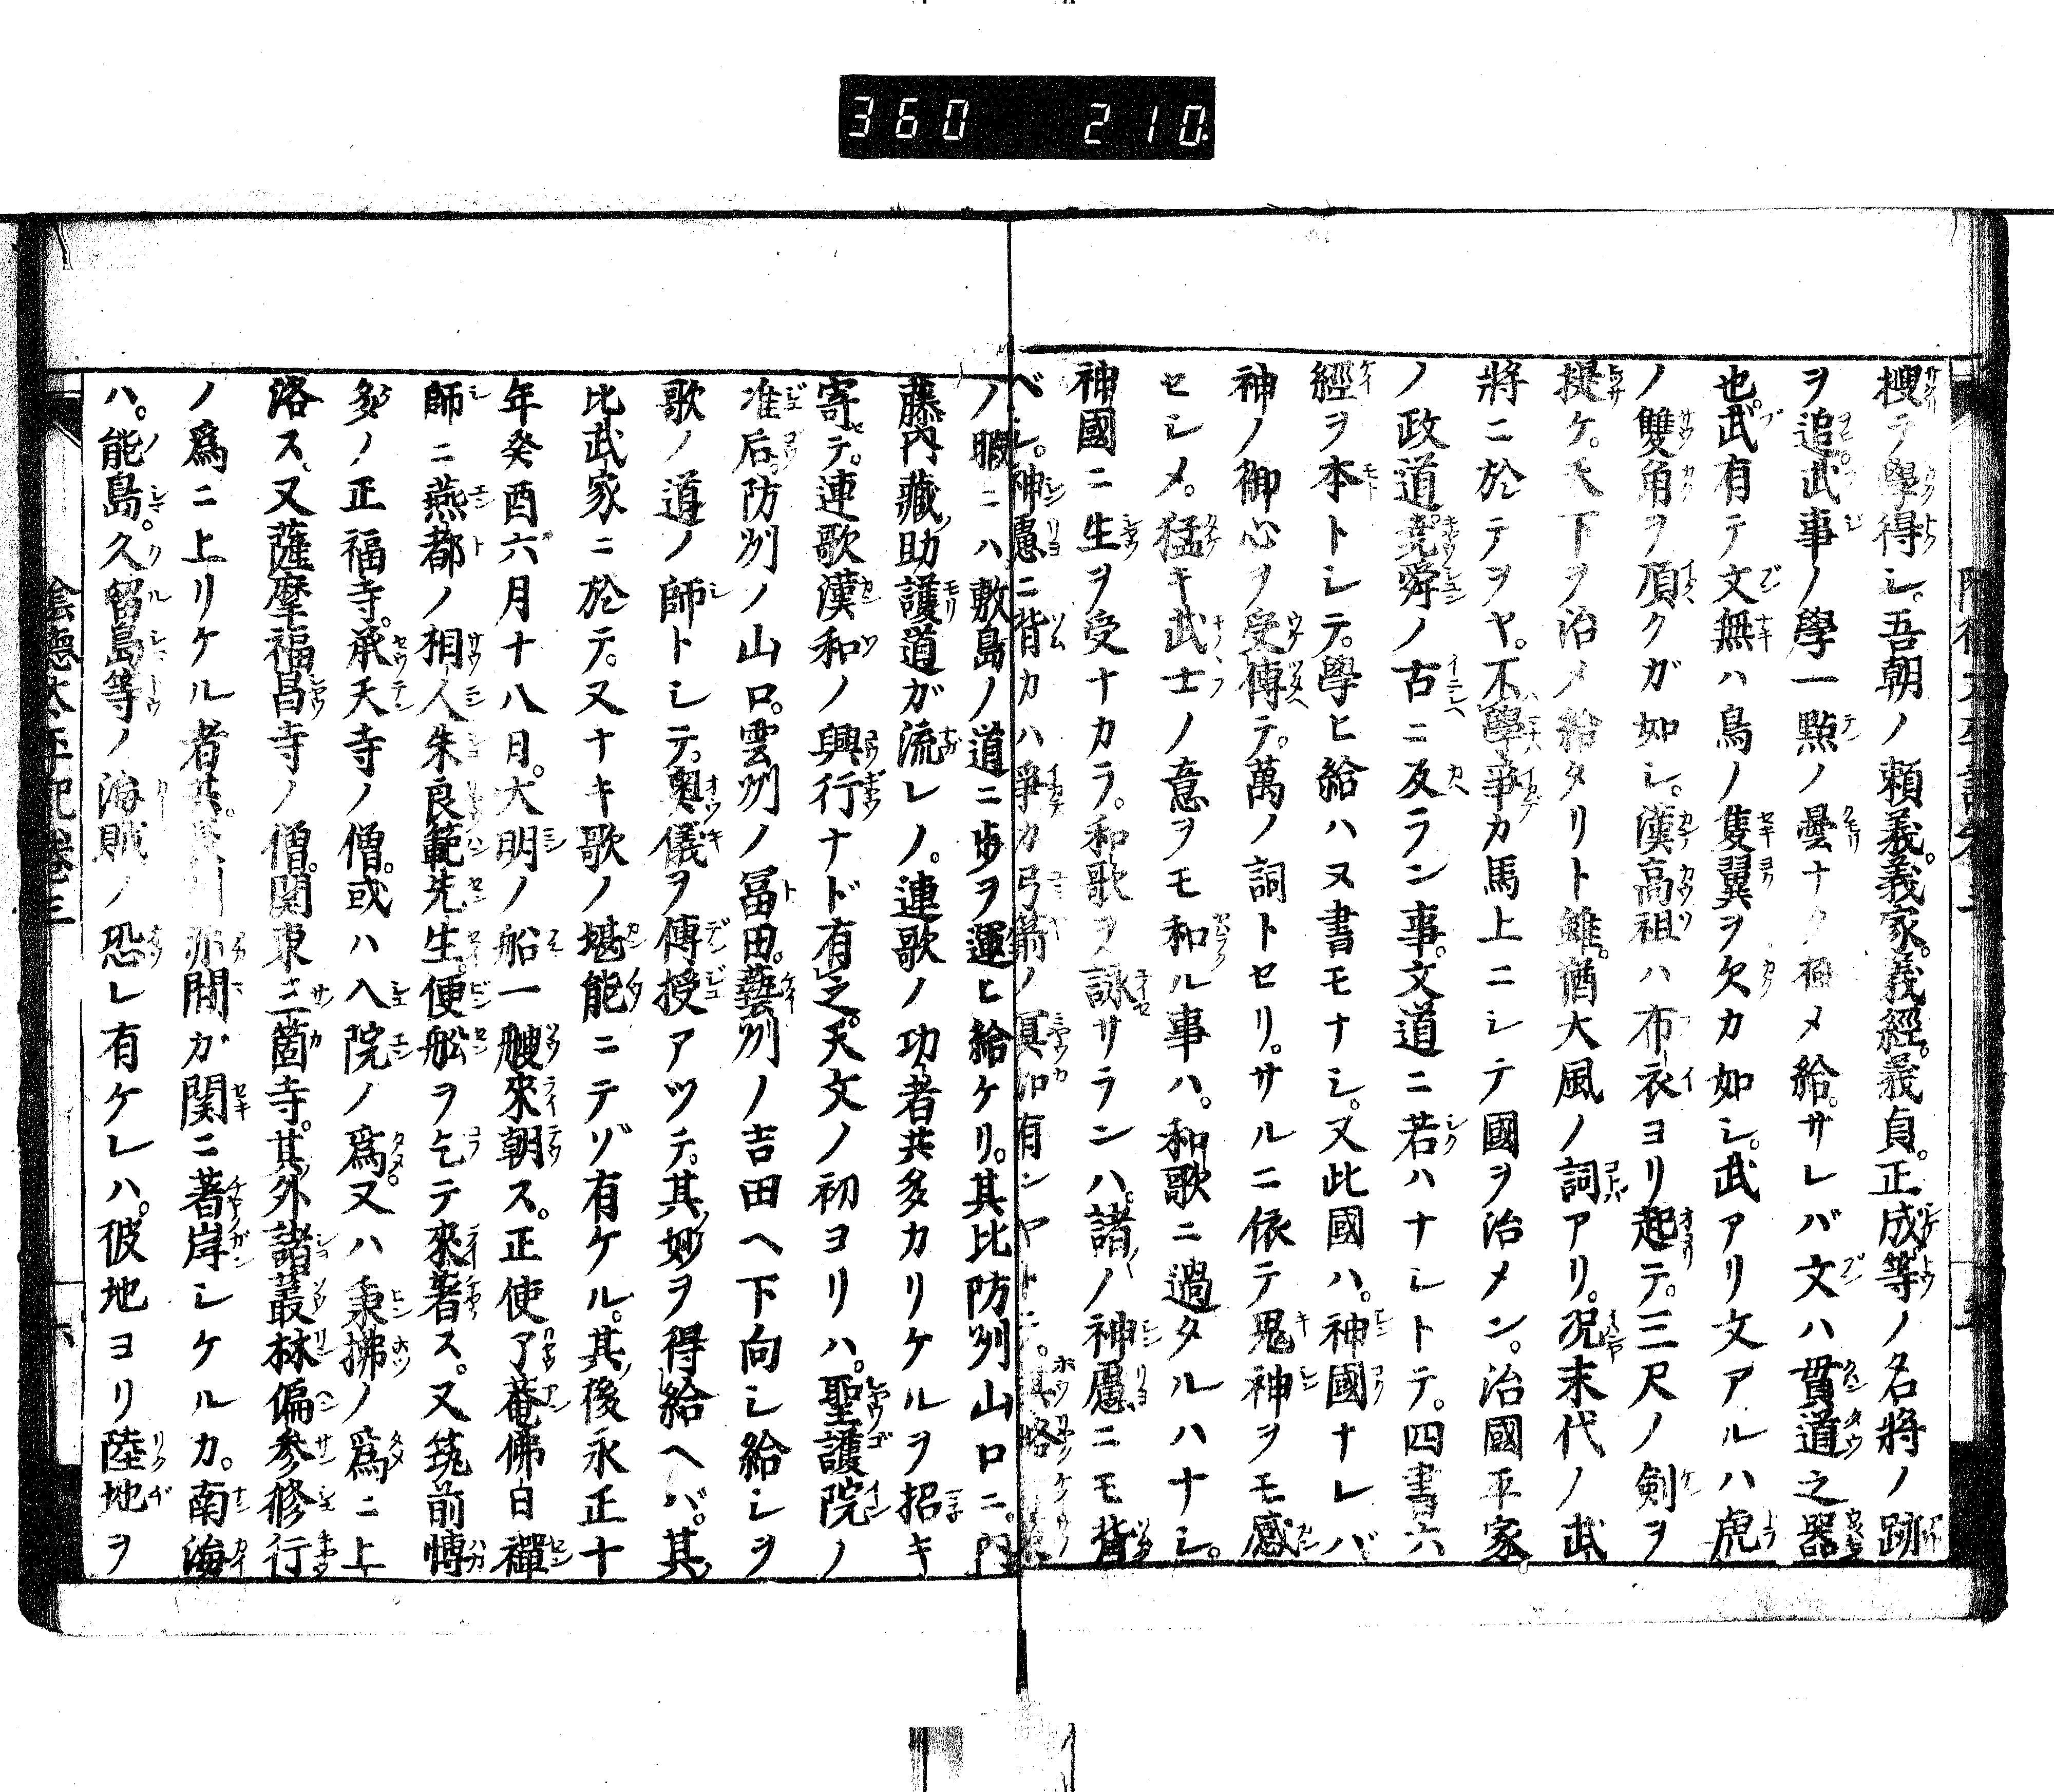 360 210
搜テ學得シ。吾朝ノ頼義。義家。義經。義貞。正成等ノ名將ノ跡
ヲ追。武事ノ學一點ノ曇ナク極メ給。サレバ文ハ貫道之器
也。武有テ文無ハ鳥ノ隻翼ヲ欠カ如シ。武アリ文アルハ虎
ノ雙角ヲ頂クガ如シ。漢高祖ハ布衣ヨリ起テ。三尺ノ剣ヲ
提ケ。天下ヲ治メ給タリト雖。猶大風ノ詞アリ。况末代ノ武
將ニ於テヲヤ。不學爭カ馬上ニシテ國ヲ治メン。治國平家。
ノ政道。尭舜ノ古ニ反ラン事。文道ニ若ハナシトテ。四書六
經ヲ本トシテ。學ヒ給ハヌ書モナシ。又此國ハ。神國ナレバ
神ノ御心ヲ受傳テ。萬ノ詞トセリ。サルニ依テ鬼神ヲモ感
セシメ。猛キ武士ノ意ヲモ和ル事ハ。和歌ニ過タルハナシ。
神國ニ生ヲ受ナカラ。和歌ヲ詠サランハ。諸ノ神慮ニモ背
ベシ。神慮ニ背カハ爭カ弓箭ノ冥加有ンヤトテ。
ノ暇ニハ敷島ノ道ニ歩ヲ運ヒ給ケリ。其比防州山口ニ。門
藤内藏助護道ガ流レノ。連歌ノ功者共多カリケルヲ招キ
寄テ。連歌漢和ノ興行ナド有之。天文ノ初ヨリハ。聖護院ノ
准后。防州ノ山口。雲州ノ冨田。藝州ノ吉田ヘ下向シ給シヲ
歌ノ道ノ師トシテ。奥儀ヲ傳授アツテ。其妙ヲ得給ヘバ。其
比武家ニ於テ。又ナキ歌ノ堪能ニテゾ有ケル。其後永正十
年癸酉六月十八日。大明ノ船一艘來朝ス。正使了菴佛白禪
師ニ燕都ノ相人朱良範先生。便舩ヲ乞テ來著ス。又筑前博
多ノ正福寺。承天寺ノ僧。或ハ入院ノ爲。又ハ秉拂ノ爲ニ上
洛ス。又薩摩福昌寺ノ僧。関東三箇寺。其外諸叢林偏參修行
ノ爲ニ上リケル者共。長州赤間カ関ニ著岸シケルカ。南海
ハ。能島。久留島等ノ海賊ノ恐レ有ケレハ。彼地ヨリ陸地ヲ
陰德太平記卷三